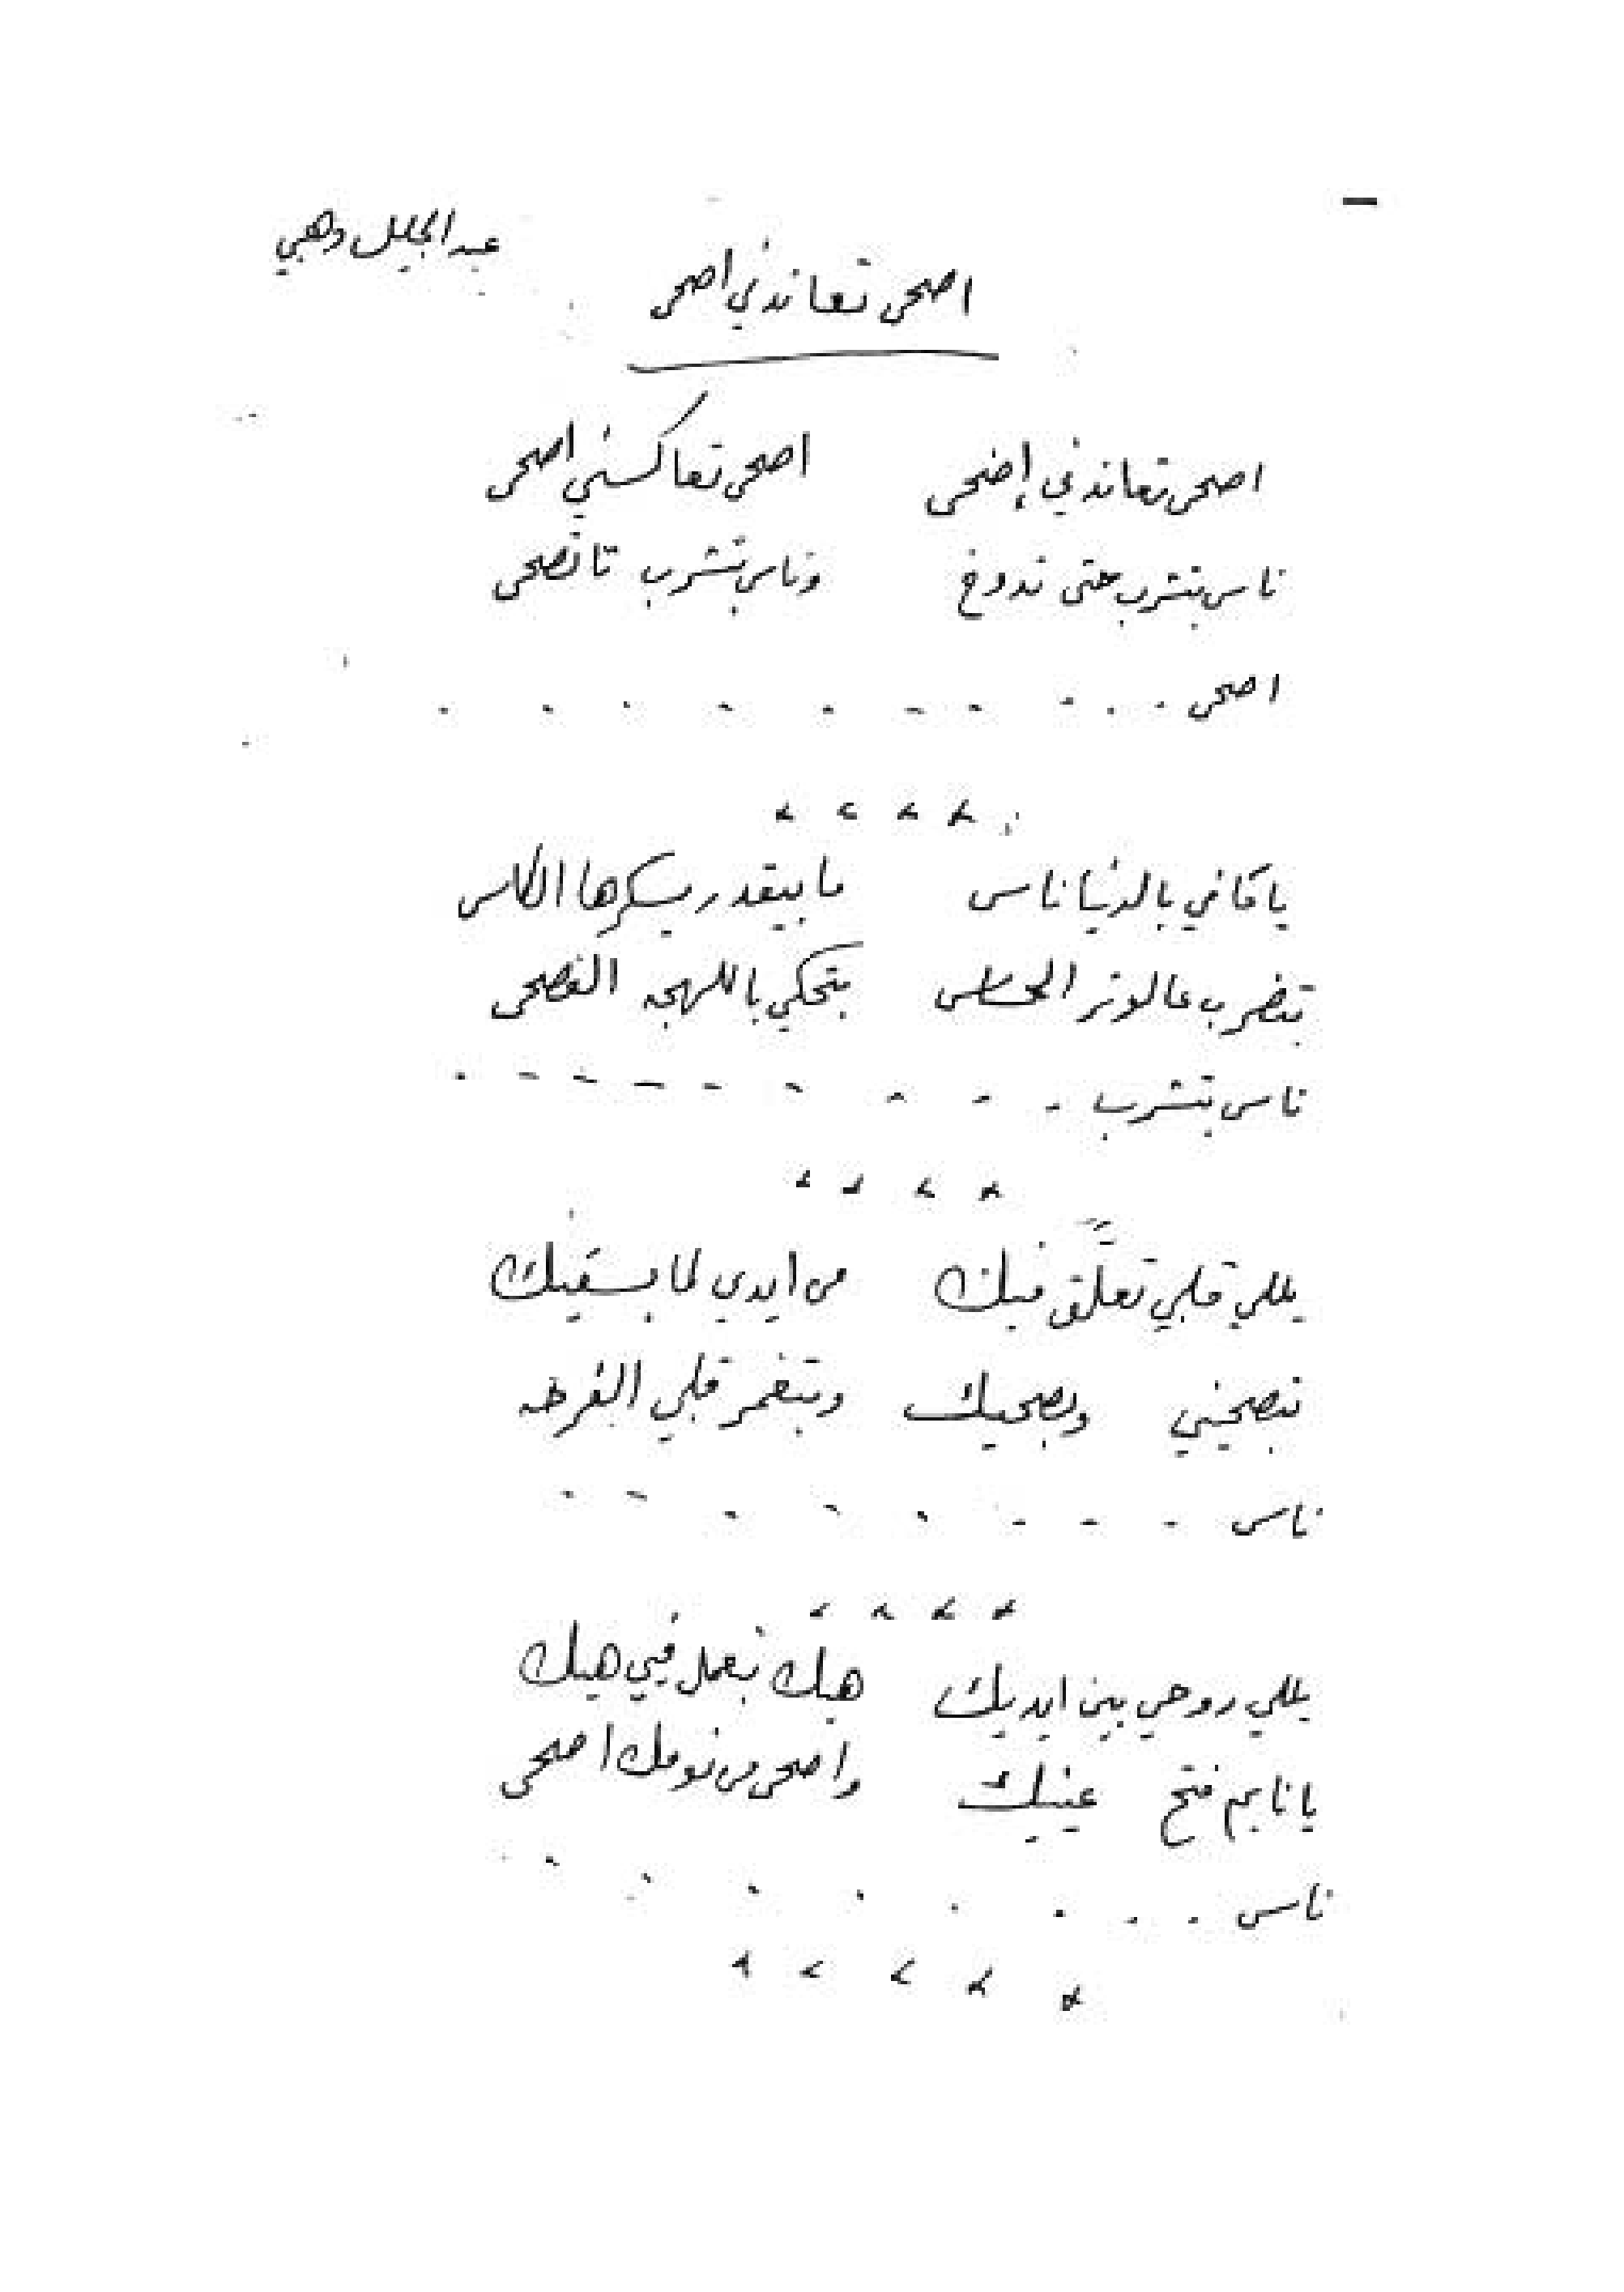 عبد الجليل وهبي
اصحى تعاندني اصحى
اصحى تعاندني إصحى اصحى تعاكسني اصحى
ناس بتشرب حتى تدوخ وناس بتشرب تا تصحى
اصحى . . . . . . . . . .
ياما في بالدنيا ناس ما بيقدر يسكرها الكاس
بتضرب عالوتر الحساس بتحكي باللهجه الفصحى
ناس بتشرب - - - - - - - - -
يللي قلبي تعلَّق فيك من ايدي لما بسقيك
بتصحيني وبصحيك وبتغمر قلبي الفرحه
ناس - - - - - - - -
يللي روحي بين ايديك هيك بتعمل فيي هيك
يا نايم فتح عينيك واصحى من نومك اصحى
ناس . . . . . . . .